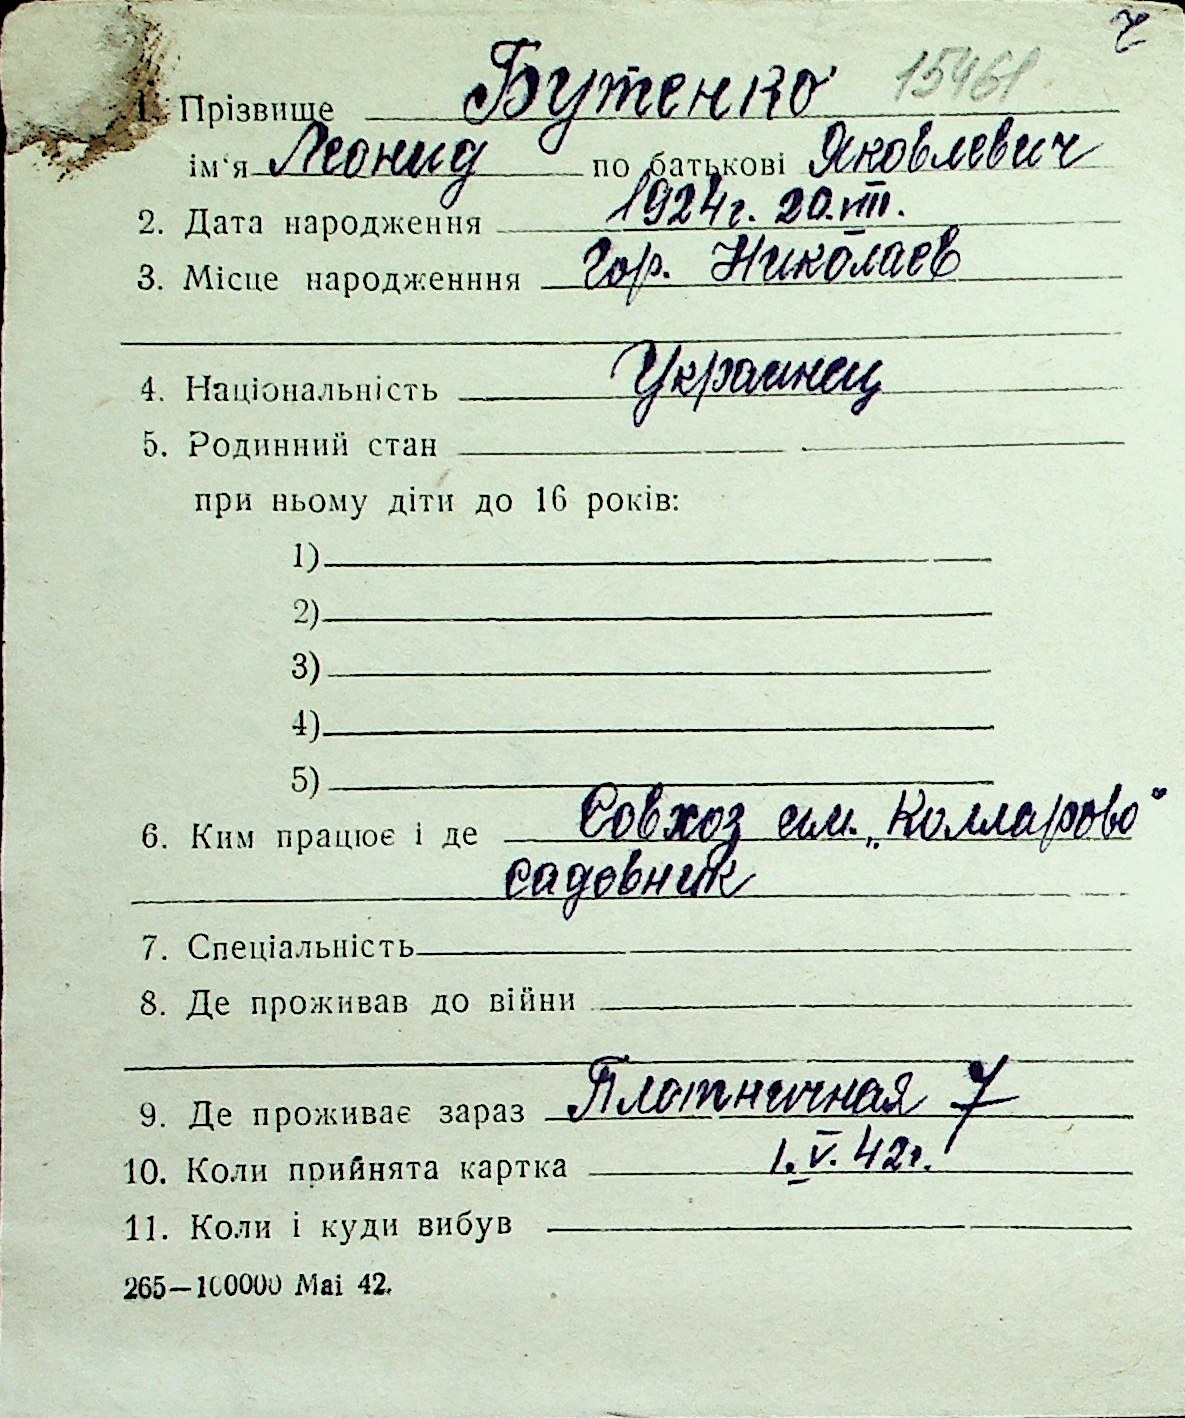 ч
1. Прізвище Бутенко 15461
ім‘я Леонид по батькові Яковлевич
2. Дата народження 1924г. 20.VIII.
3. Місце народженння Гор. Николаев
4. Національність Украинец
5. Родинний стан
при ньому діти до 16 років:
1)
2)
3)
4)
5)
6. Ким працює і де Совхоз им. „Колларово“
садовник
7. Спеціальність
8. Де проживав до війни
9. Де проживає зараз Плотничная 7
10. Коли прийнята картка 1.V.42г.
11. Коли і куди вибув
265—100000 Mai 42.